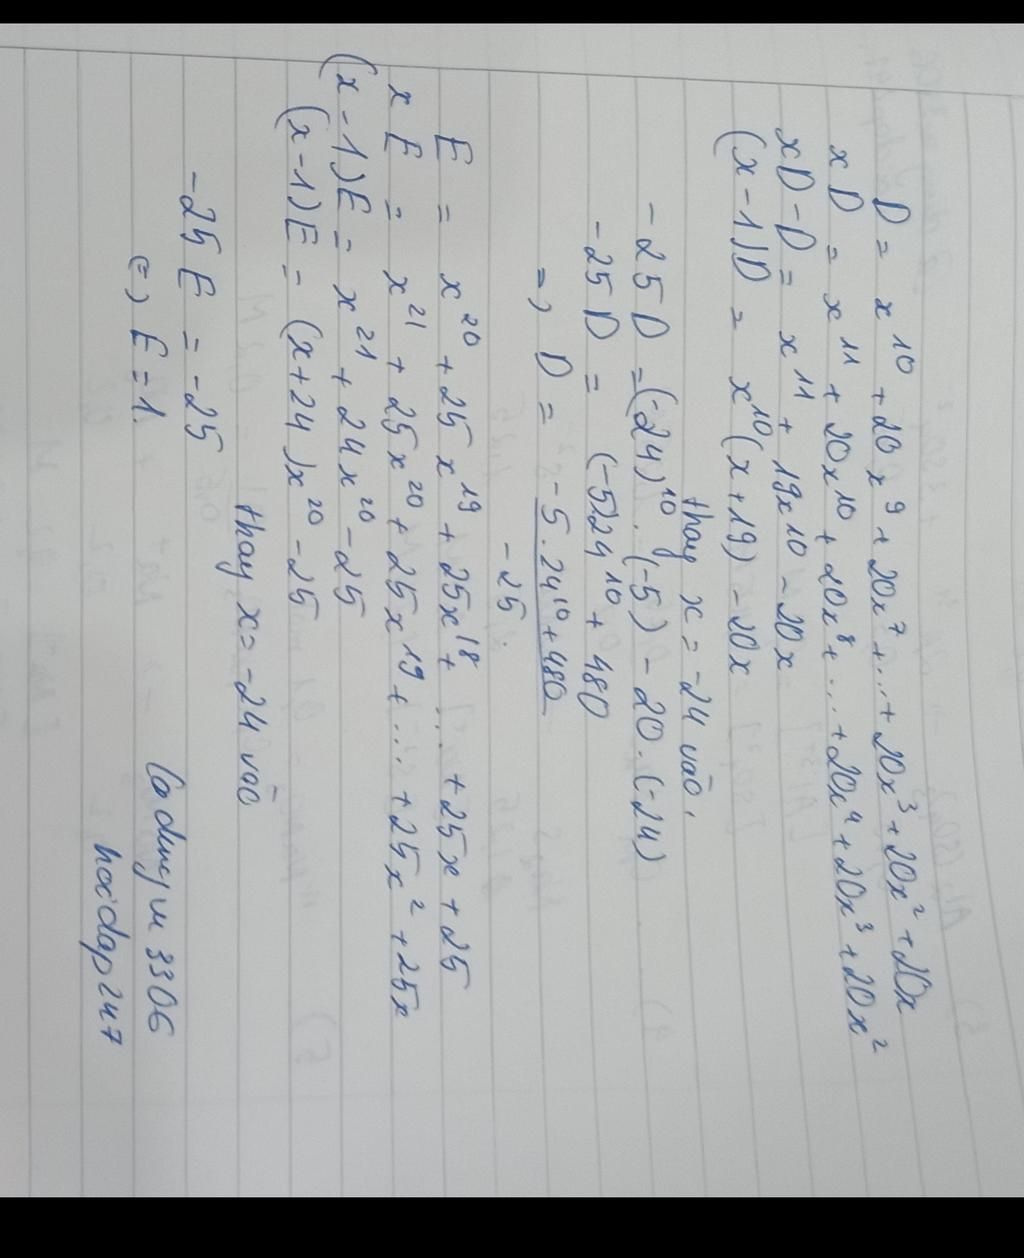 D = x¹⁰ + 20x⁹ + 20x⁷ + ... + 20x³ + 20x² + 20x
xD = x¹¹ + 20x¹⁰ + 20x⁸ + ... + 20x⁴ + 20x³ + 20x²
xD - D = x¹¹ + 19x¹⁰ - 20x
(x - 1)D = x¹⁰(x + 19) - 20x
thay x = -24 vào,
-25D = (-24)¹⁰ . (-5) - 20 . (-24)
-25D = (-5)24¹⁰ + 480
=) D = -5 . 24¹⁰ + 480
-25.
E = x²⁰ + 25x¹⁹ + 25x¹⁸ + ... + 25x + 25
xE = x²¹ + 25x²⁰ + 25x¹⁹ + ... + 25x² + 25x
(x - 1)E = x²¹ + 24x²⁰ - 25
(x - 1)E = (x + 24)x²⁰ - 25
thay x = -24 vào
-25E = -25
=) E = 1.
3306
hoidap247